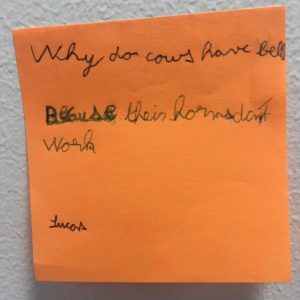 Why do cows have bells
Because their horns don't
work
Lucas